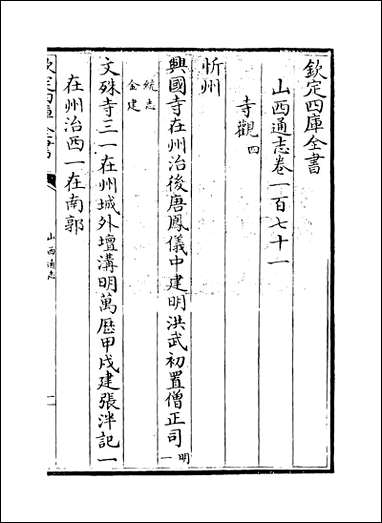 欽定四庫全書
山西通志卷一百七十一
寺觀四
忻州
興國寺在州治後唐鳳儀中建明洪武初置僧正司明一
統志
金建
文殊寺三一在州城外壇溝明萬厯甲戌建張泮記一
在州治西一在南郭
欽定四庫全書
山西通志
一